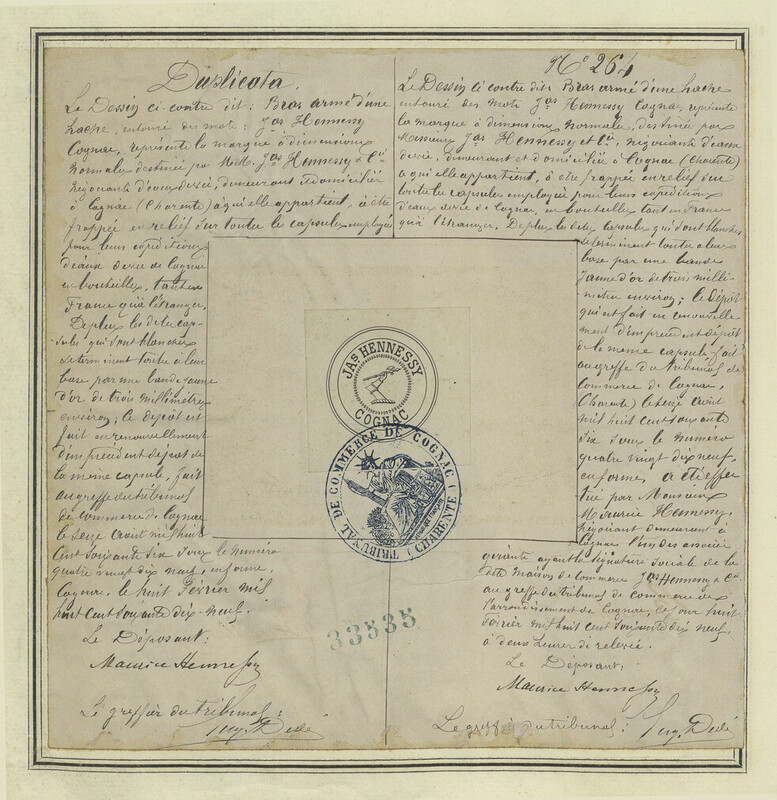 Duplicata.
Le Dessin ci-contre dit: Bras armé d'une
hache, entouré des mots: Jas Hennessy
Cognac, représente la marque à dimensions
normales destinée par MM. Jas Hennessy & Cie
Négociants d'eaux de vie, demeurant et domiciliés
à Cognac (Charente) à qui elle appartient, à être
frappée en relief sur toute la capsule employée
pour leurs expéditions
d'eaux de vie de Cognac
en bouteilles, tant en
France qu'à l'étranger.
De plus les dites cap-
sules qui sont blanches
se terminent toutes à leur
base par une bande jaune
d'or de trois millimètres
environ; ce dépôt est
fait en renouvellement
d'un précédent dépôt de
la même capsule, fait
au greffe du tribunal
de commerce de Cognac
le seize août mil huit
cent soixante six sous le numéro
quatre vingt dix neuf, en forme.
Cognac, le huit février mil
huit cent soixante dix-neuf.
Le Déposant:
Maurice Hennessy
Le greffier du tribunal:
Eug. Dedé
No 264
Le Dessin ci contre dit: Bras armé d'une hache
entouré des mots Jas Hennessy Cognac, représente
la marque à dimensions normales, destinée par
Messieurs Jas Hennessy et Cie, négociants d'eaux
de vie, demeurant et domiciliés à Cognac (Charente)
à qui elle appartient, à être frappée en relief sur
toute la capsule employée pour leurs expéditions
d'eaux de vie de Cognac, en bouteilles tant en France
qu'à l'étranger. De plus les dites capsules qui sont blanches
se terminent toutes à leur
base par une bande
jaune d'or de trois milli-
mètres environ; ce dépôt
qui est fait en renouvelle-
ment d'un précédent dépôt
de la même capsule fait
au greffe du tribunal de
Commerce de Cognac,
Charente) le seize août
mil huit cent soixante
six sous le numéro
quatre vingt dix neuf,
en forme, a été effec
tué par Monsieur
Maurice Hennessy,
négociant demeurant à
Cognac l'un des associés
gérants ayant la signature sociale de la
dite maison de commerce Jas Hennessy & Cie
au greffe du tribunal de commerce de
l'arrondissement de Cognac, ce jour huit
février mil huit cent soixante dix neuf,
à deux heures de relevée.
Le Déposant:
Maurice Hennessy
Le greffier du tribunal:
Eug. Dedé
JAS HENNESSY
COGNAC
TRIBUNAL DE COMMERCE DE COGNAC (CHARENTE)
33535